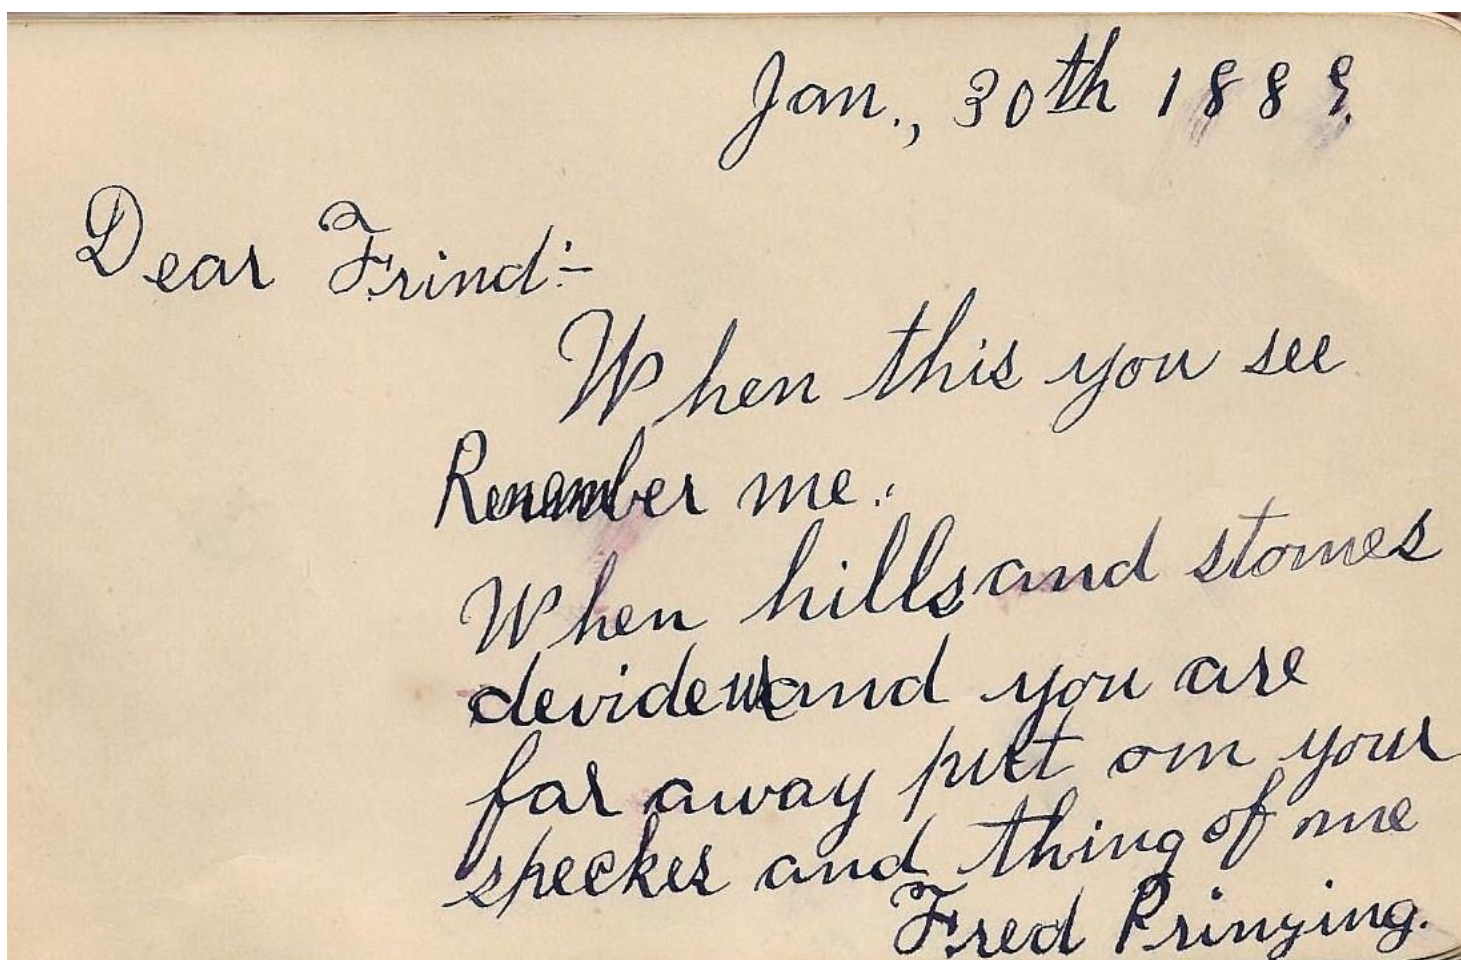 Jan., 30th 1889.
Dear Frind:-
When this you see
Remember me.
When hills and stones
devide us and you are
far away put on your
speckes and thing of me
Fred Prinzing.